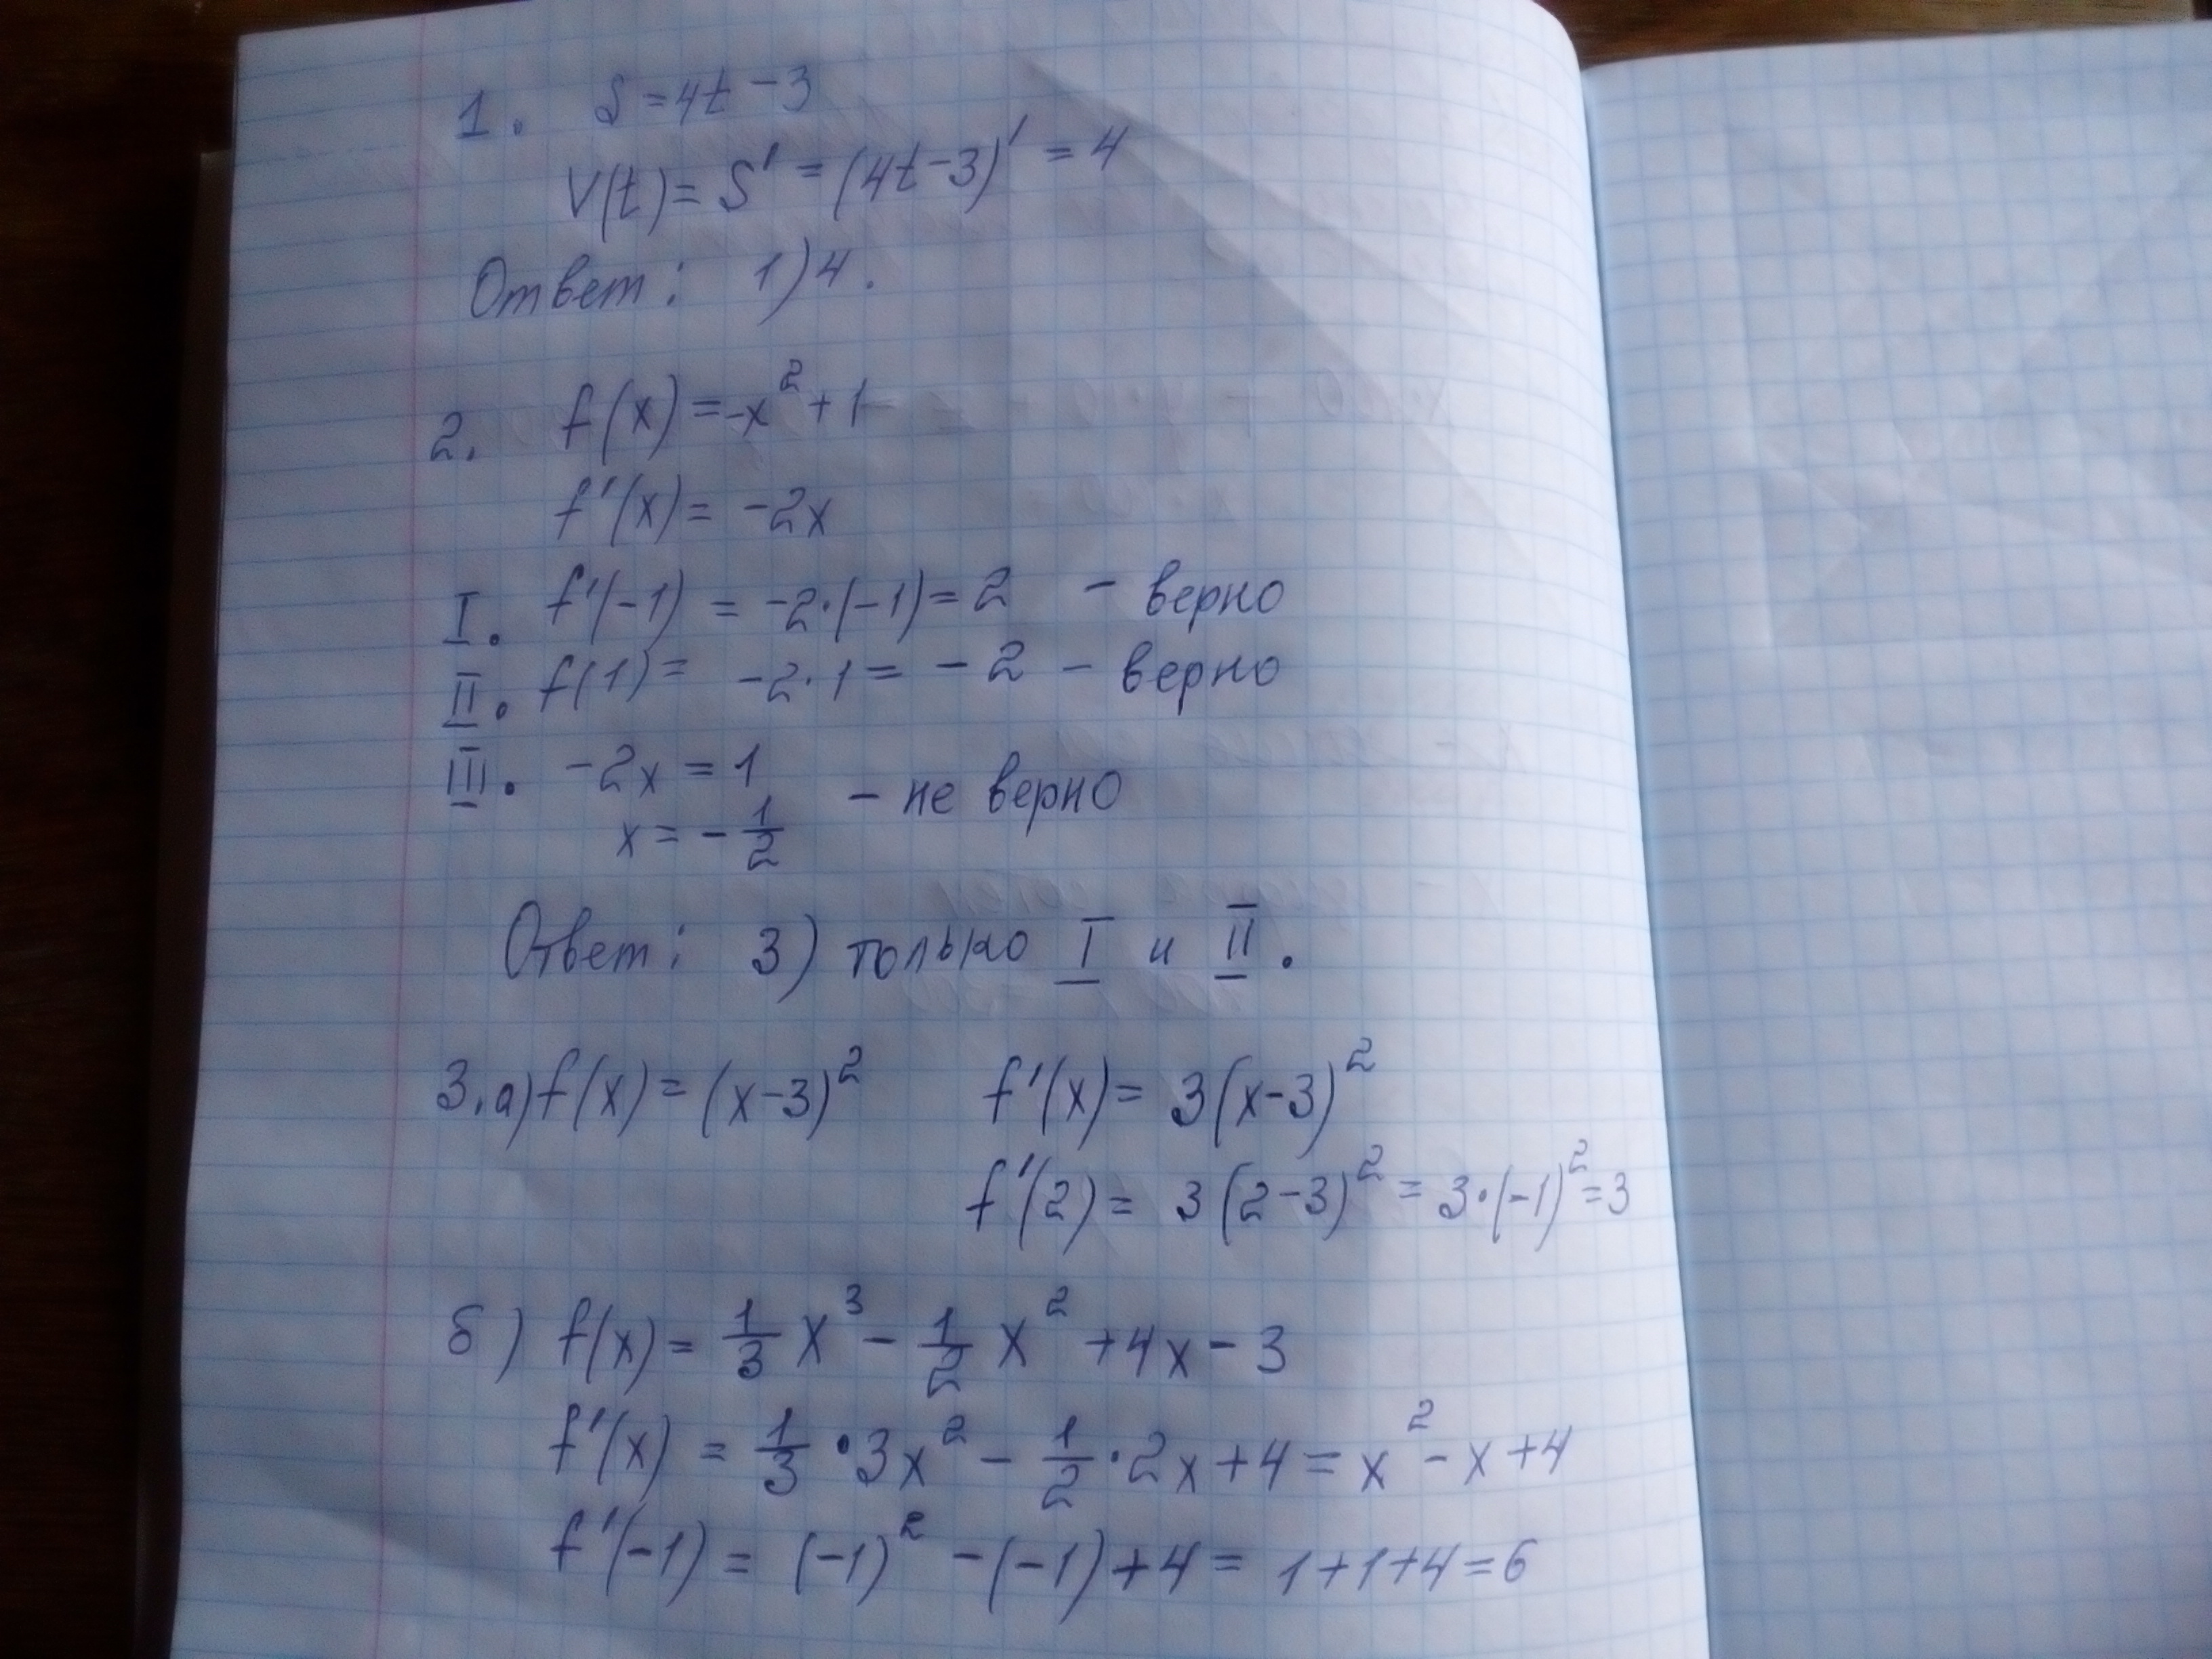 1. S = 4t - 3
V(t) = S' = (4t - 3)' = 4
Ответ: 1) 4.
2. f(x) = -x² + 1
f'(x) = -2x
I. f'(-1) = -2·(-1) = 2 - верно
II. f(1) = -2·1 = -2 - верно
III. -2x = 1
x = -1/2 - не верно
Ответ: 3) только I и II.
3. а) f(x) = (x-3)² f'(x) = 3(x-3)²
f'(2) = 3(2-3)² = 3·(-1)² = 3
б) f(x) = 1/3 x³ - 1/2 x² + 4x - 3
f'(x) = 1/3 · 3x² - 1/2 · 2x + 4 = x² - x + 4
f'(-1) = (-1)² - (-1) + 4 = 1 + 1 + 4 = 6